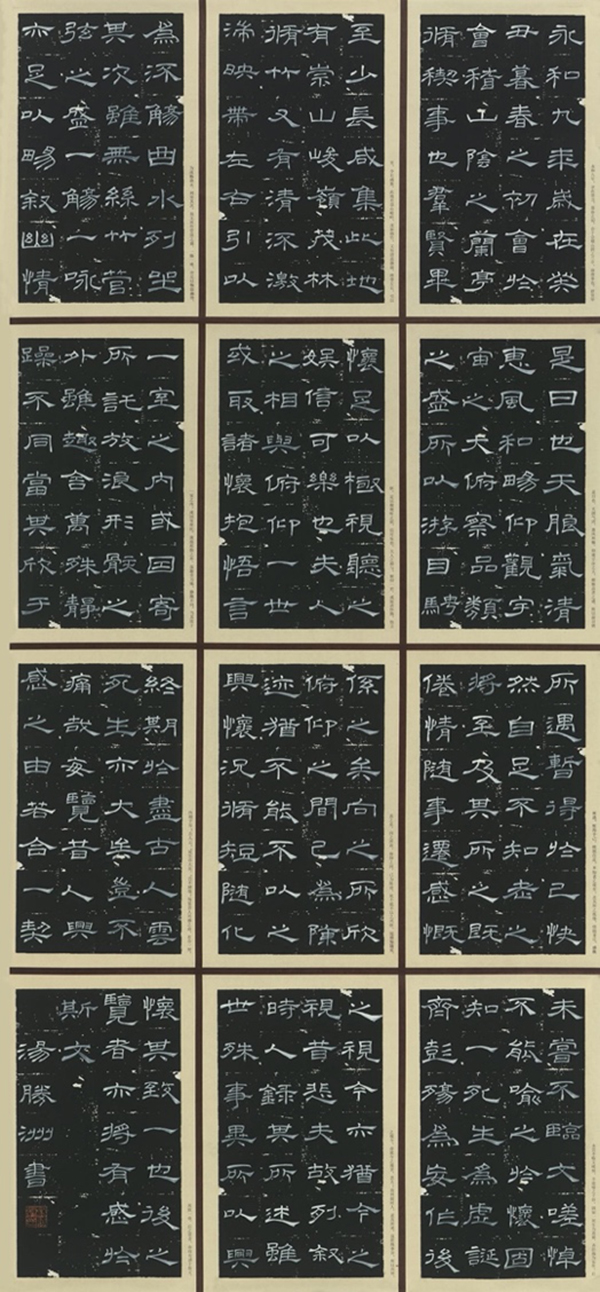 永和九年歲在癸
丑暮春之初會於
會稽山陰之蘭亭
脩稧事也羣賢畢
至少長咸集此地
有崇山峻嶺茂林
脩竹又有清流激
湍映帶左右引以
為流觴曲水列坐
其次雖無絲竹管
弦之盛一觴一咏
亦足以暢叙幽情
是日也天朗氣清
惠風和暢仰觀宇
宙之大俯察品類
之盛所以游目騁
懷足以極視聽之
娛信可樂也夫人
之相與俯仰一世
或取諸懷抱悟言
一室之内或因寄
所託放浪形骸之
外雖趣舍萬殊靜
躁不同當其欣于
所遇暫得於己快
然自足不知老之
將至及其所之既
倦情随事遷感慨
係之矣向之所欣
俯仰之間已為陳
迹猶不能不以之
興懷況脩短随化
終期於盡古人雲
死生亦大矣豈不
痛哉每覽昔人興
感之由若合一契
未嘗不臨文嗟悼
不能喻之於懷固
知一死生為虛誕
齊彭殤為妄作後
之視今亦猶今之
視昔悲夫故列叙
時人錄其所述雖
世殊事異所以興
懷其致一也後之
覽者亦將有感於
斯文
湯勝洲書